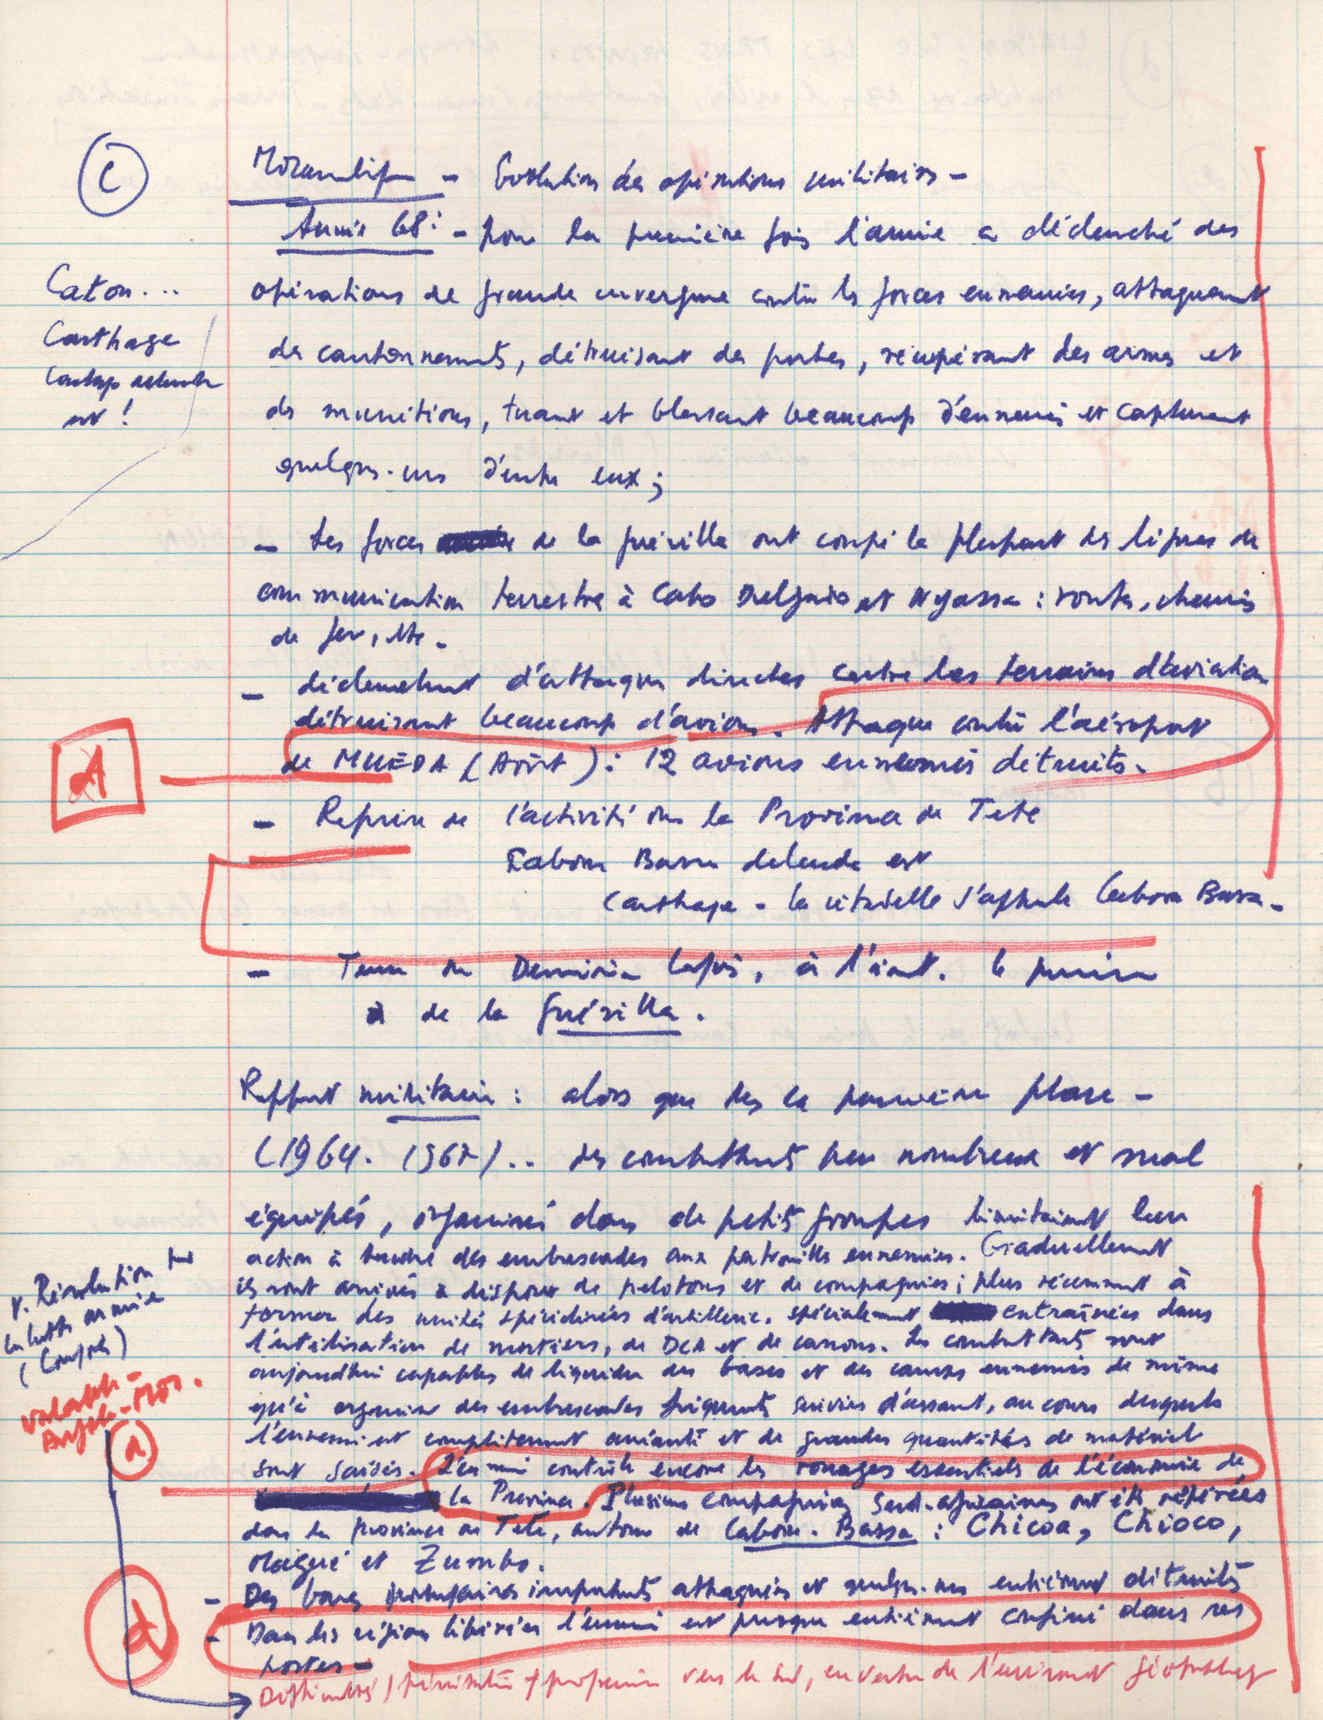 C
Mozambique - Evolution des opérations militaires -
Année 68 : - pour la première fois l'armée a déclenché des
Caton...
opérations de grande envergure contre les forces ennemies, attaquant
Carthage
des cantonnements, détruisant des postes, récupérant des armes et
est !
des munitions, tuant et blessant beaucoup d'ennemis et capturant
quelques-uns d'entre eux ;
- Les forces de la guérilla ont coupé la plupart des lignes de
communication terrestre à Cabo Delgado et Nyassa : routes, chemins
de fer, etc.
- déclenchant d'attaques directes contre les terrains d'aviation
détruisant beaucoup d'avions. Attaque contre l'aéroport
de MUEDA (Août) : 12 avions ennemis détruits.
A
- Reprise de l'activité dans la Province de Tete
Cabora Bassa delenda est
Carthage - la citadelle s'appelle Cabora Bassa -
- à l'est. le
de la guérilla.
Rapport militaire : alors que dès la première phase -
(1964. 1967).. des combattants peu nombreux et mal
équipés, organisés dans de petits groupes limitaient leur
action à tendre des embuscades aux patrouilles ennemies. Graduellement
ils sont arrivés à disposer de pelotons et de compagnies ; plus récemment à
former des unités spécialisées d'artillerie. spécialement entraînées dans
l'utilisation de mortiers, de DCA et de canons. Les combattants sont
aujourd'hui capables de liquider des bases et des camps ennemis de même
qu'à organiser des embuscades fréquentes suivies d'assaut, au cours desquels
l'ennemi est complètement anéanti et de grandes quantités de matériel
sont saisies. L'ennemi contrôle encore les rouages essentiels de l'économie de
la Province. Plusieurs compagnies Sud-africaines ont été repérées
dans la province de Tete, autour de Cabora-Bassa : Chicoa, Chioco,
Magué et Zumbo.
- Des bases portugaises importantes attaquées et quelques-unes entièrement détruites
- Dans les régions libérées l'ennemi est presque entièrement confiné dans ses
postes -
vers le Sud, en vertu de l'environnt
v. Révolution
la lutte armée
d
d